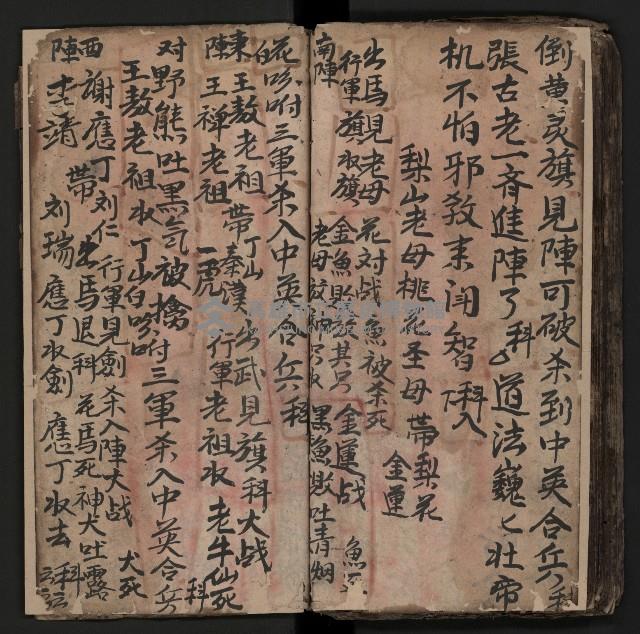 倒黄灵旗見陣可破杀到中英合兵科
張古老一斉進陣了科 道法巍々壮帝
机不怕邪教来闭智 科入下
梨山老母桃花圣母帶梨花金運
出馬見老母 花对战 馬被杀死
行軍旗收旗 金魚 金運战 魚
南陣 老母 黑魚 吐青烟
花吩咐三軍杀入中英合兵科
東陣 白王敖老祖帶丁山 出武見旗科大战
王禅老祖 一虎秦漢 行軍老祖收老牛仙死科
对野熊吐黑気被擒
王敖老祖收丁山白吩咐三軍杀入中英合兵
西陣 謝應丁刘仁 行軍見劍杀入陣犬战 犬死
李靖 帶 出馬退科 花馬死神犬吐露科
刘瑞應丁收劍 應丁收去